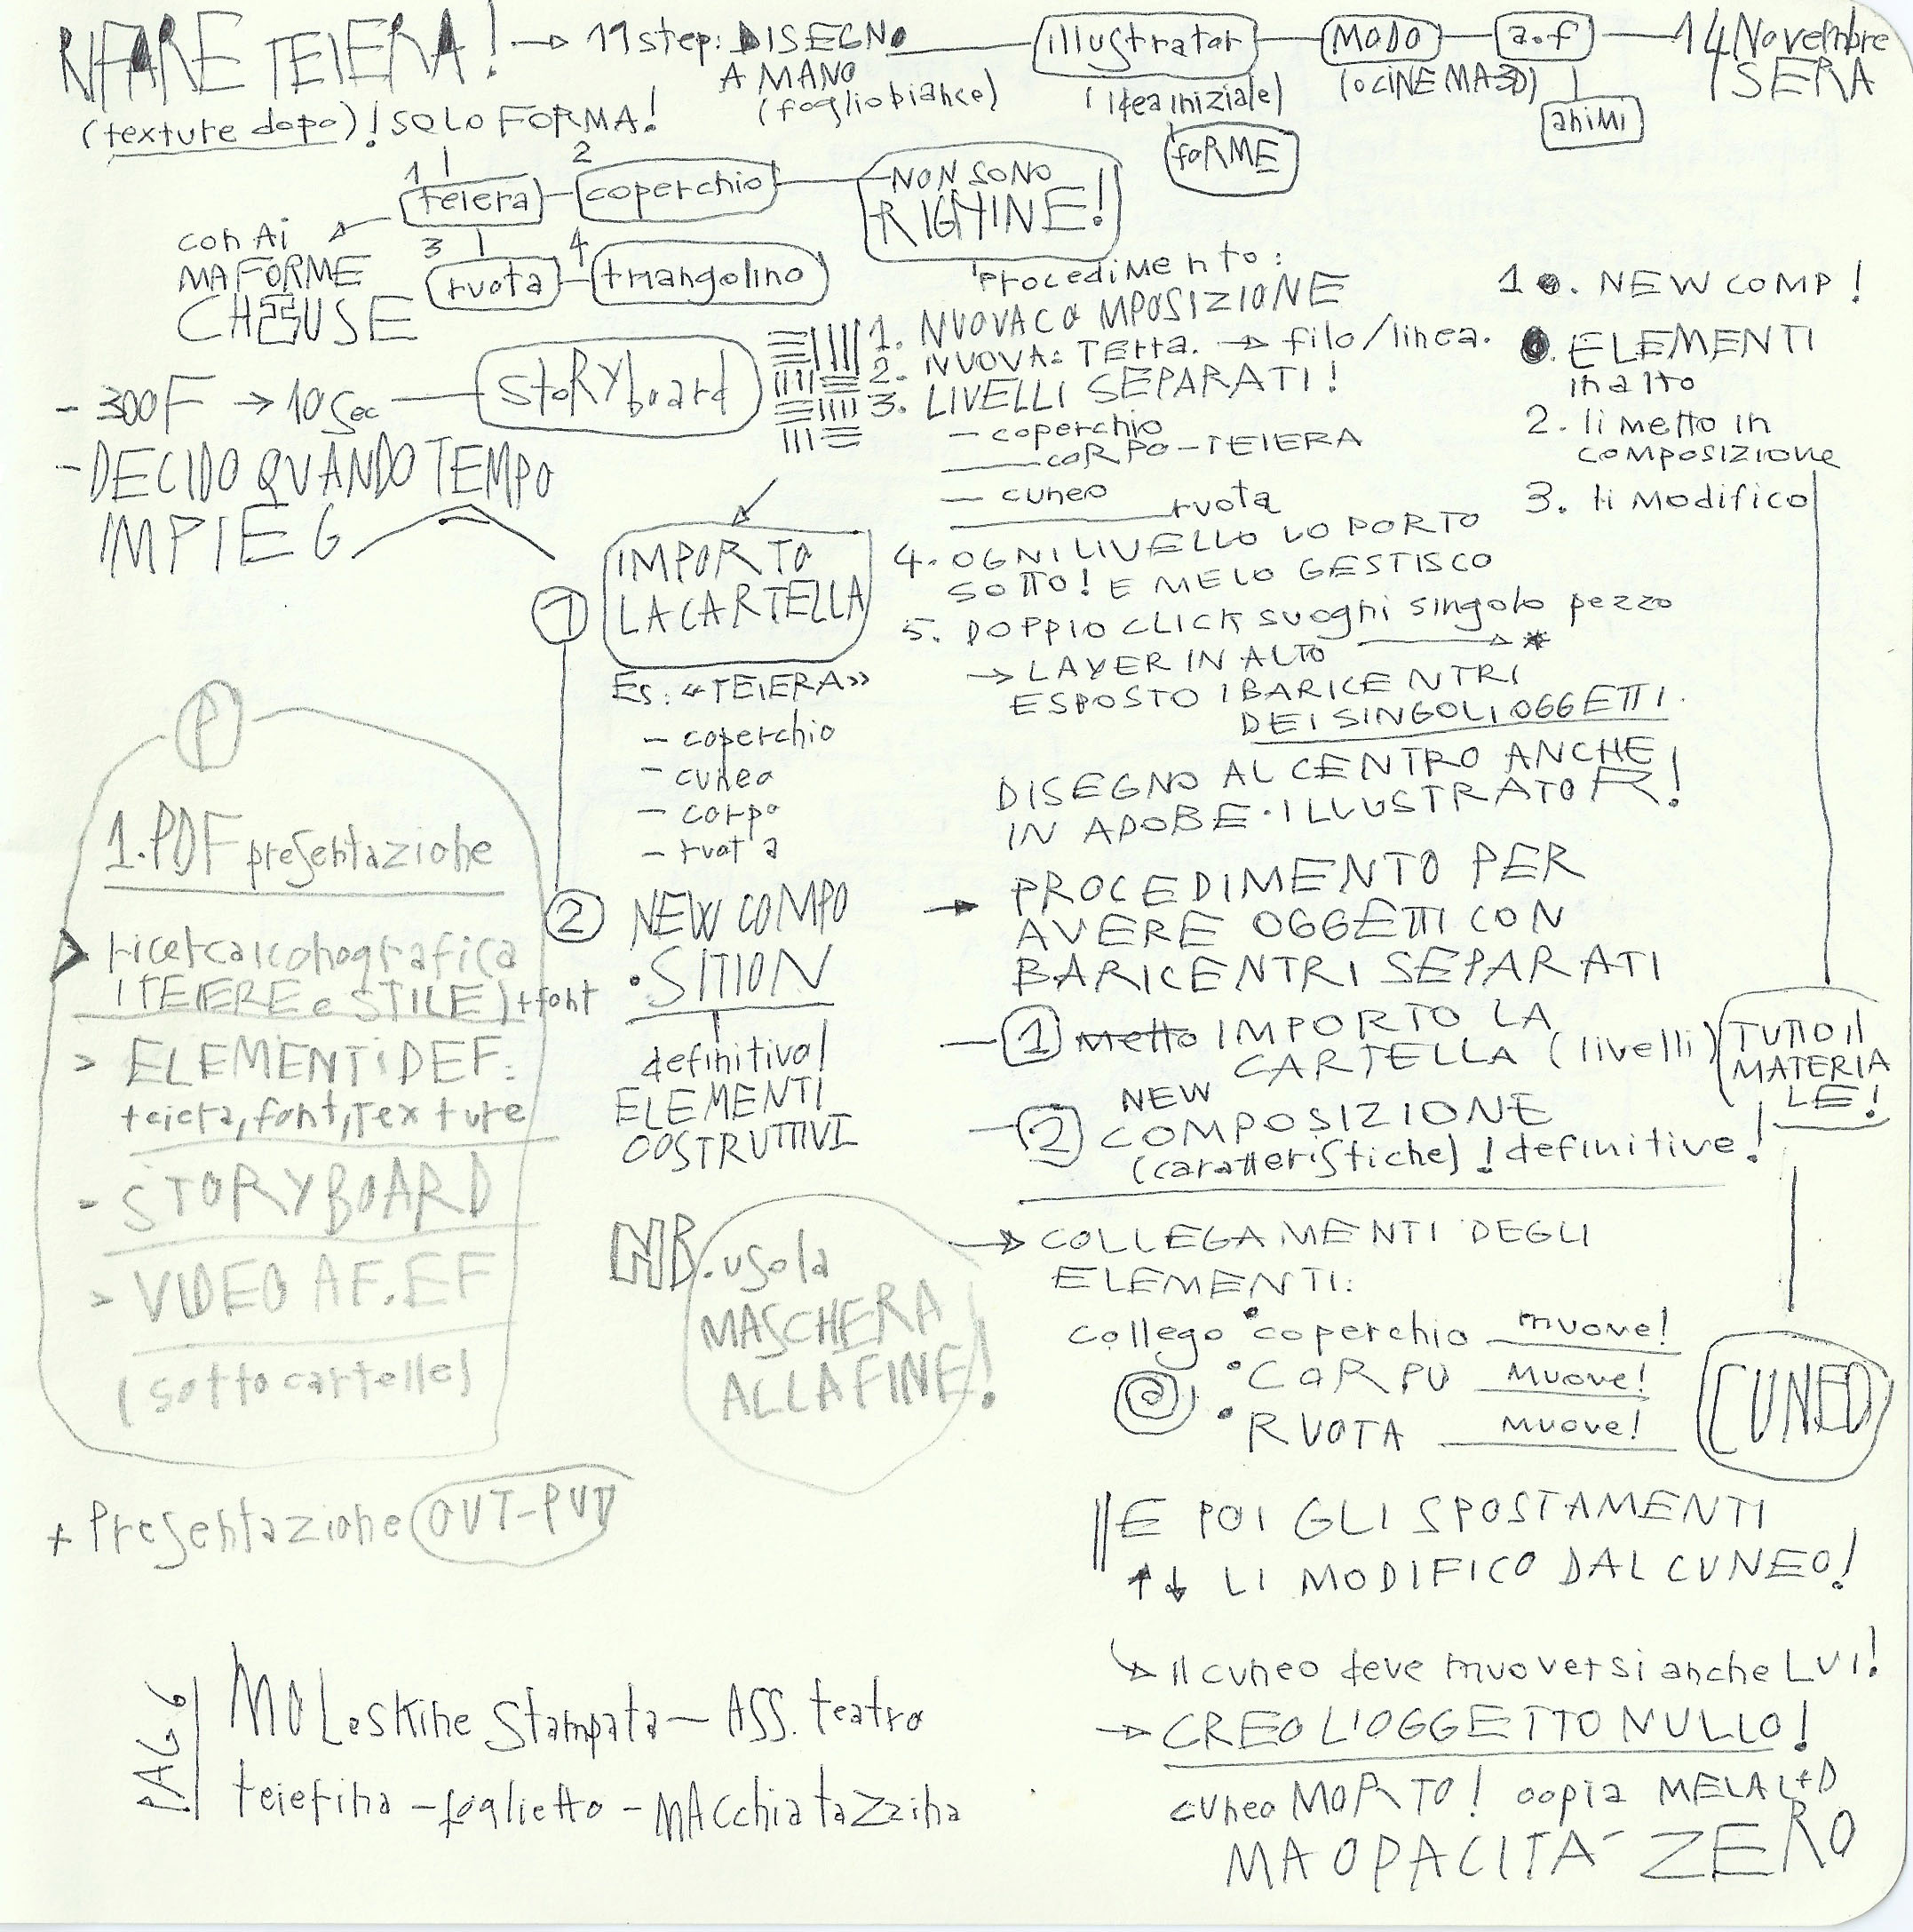 RIFARE TEIERA! → 1°step: DISEGNO
A MANO
(foglio bianco)
illustrator
(idea iniziale)
FORME
MODO
(o CINEMA3D)
a.f
animi
14 Novembre
SERA
(texture dopo)! SOLO FORMA!
1 teiera
2 coperchio
3 ruota
4 triangolino
NON SONO
RIGHINE!
con Ai
MA FORME
CHIUSE
- 300F → 10 sec
storyboard
- DECIDO QUANDO TEMPO
IMPIEG
1 IMPORTO
LA CARTELLA
Es: «TEIERA»
- coperchio
- cuneo
- corpo
- ruota
2 NEW COMPO
•SITION
definitiva!
ELEMENTI
COSTRUTTIVI
NB. uso la
MASCHERA
ALLA FINE!
P
1. PDF presentazione
> ricerca iconografica
(TEIERE e STILE) + font
> ELEMENTI DEF:
teiera, font, texture
- STORYBOARD
> VIDEO AF.EF
(sottocartelle)
+ Presentazione OUT-PUT
Procedimento:
1. NUOVA COMPOSIZIONE
2. NUOVA: Terra. → filo/linea.
3. LIVELLI SEPARATI!
- coperchio
- CORPO-TEIERA
- cuneo
ruota
4. OGNI LIVELLO LO PORTO
SOTTO! E ME LO GESTISCO
5. DOPPIO CLICK su ogni singolo pezzo
→ LAYER IN ALTO → *
ESPOSTO I BARICENTRI
DEI SINGOLI OGGETTI.
DISEGNO AL CENTRO ANCHE
IN ADOBE·ILLUSTRATOR!
→ PROCEDIMENTO PER
AVERE OGGETTI CON
BARICENTRI SEPARATI
- 1 Metto IMPORTO LA
CARTELLA (livelli)
- 2 NEW
COMPOSIZIONE
(caratteristiche)! definitive!
→ COLLEGAMENTI DEGLI
ELEMENTI:
collego • coperchio muove!
• CORPO muove!
• RUOTA muove!
E POI GLI SPOSTAMENTI
↑↓ LI MODIFICO DAL CUNEO!
→ Il cuneo deve muoversi anche LUI!
→ CREO L'OGGETTO NULLO!
cuneo MORTO! copia MELA L+D
MA OPACITA' ZERO
1. NEW COMP!
ELEMENTI
in alto
2. li metto in
composizione
3. li modifico
TUTTO il
MATERIA
LE!
CUNEO
PAG 6
MOLeskine stampata - ASS. teatro
teierina - foglietto - MAcchia tazzina